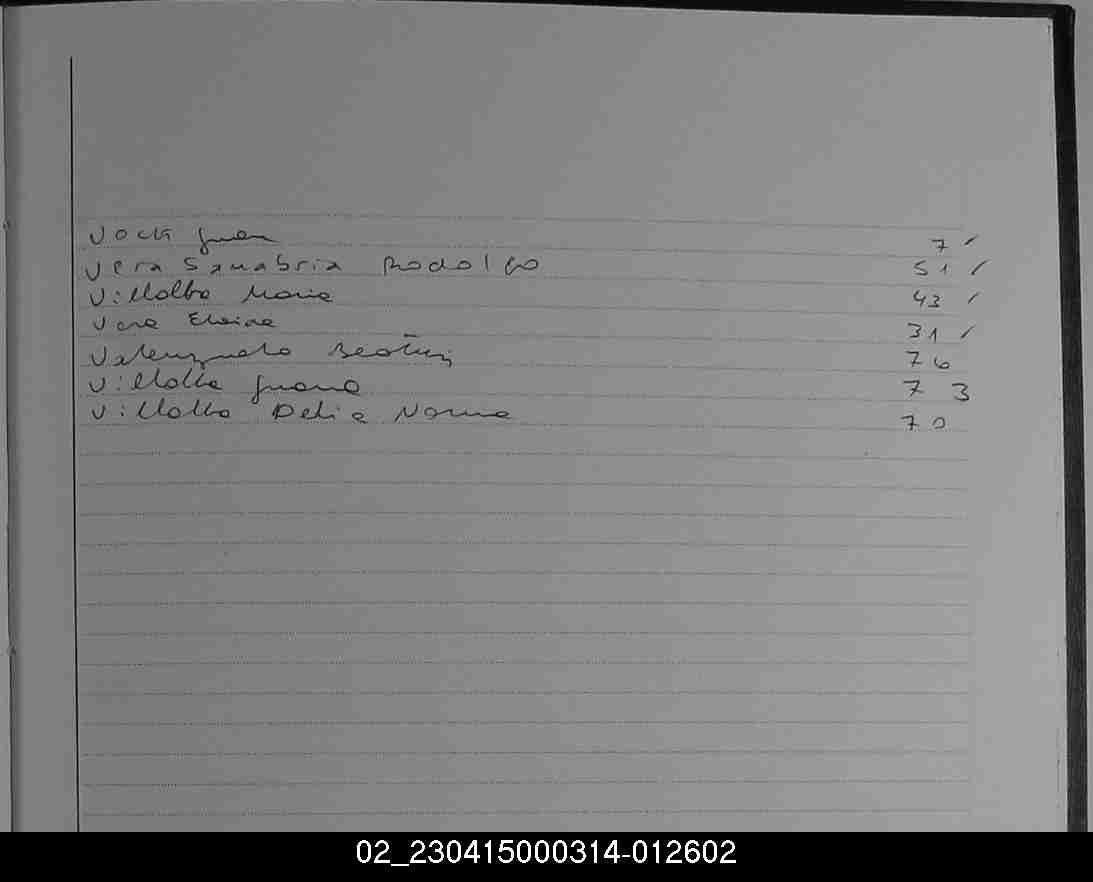 Vock Juan 7 /
Vera Sanabria Rodolfo 51 /
Villalba Maria 43 /
Vera Elvira 31 /
Valenzuela Beatriz 76
Villalba Juana 73
Villalba Delia Norma 70
02_230415000314-012602